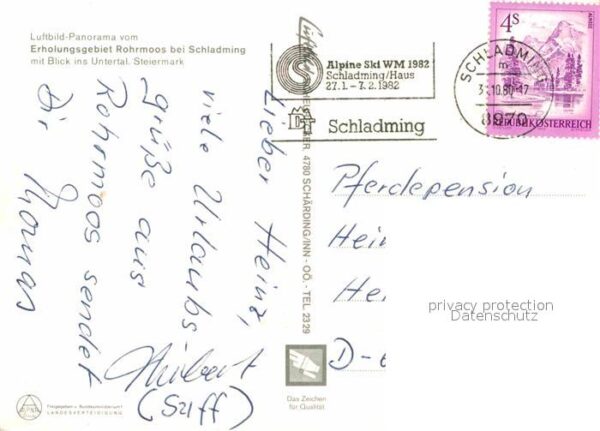 Luftbild-Panorama vom
Erholungsgebiet Rohrmoos bei Schladming
mit Blick ins Untertal, Steiermark
Lieber Heinz,
viele Urlaubs
grüße aus
Rohrmoos sendet
Dir
Thomas
(Sziff)
4780 SCHÄRDING/INN - OÖ. - TEL. 2329
Alpine Ski WM 1982
Schladming/Haus
27.1. - 7.2.1982
Schladming
SCHLADMING
8970
4S
REPUBLIK ÖSTERREICH
Pferdepension
Hein
He
D-
privacy protection
Datenschutz
Das Zeichen
für Qualität
ALPINE
Freigegeben v. Bundesministerium f.
LANDESVERTEIDIGUNG